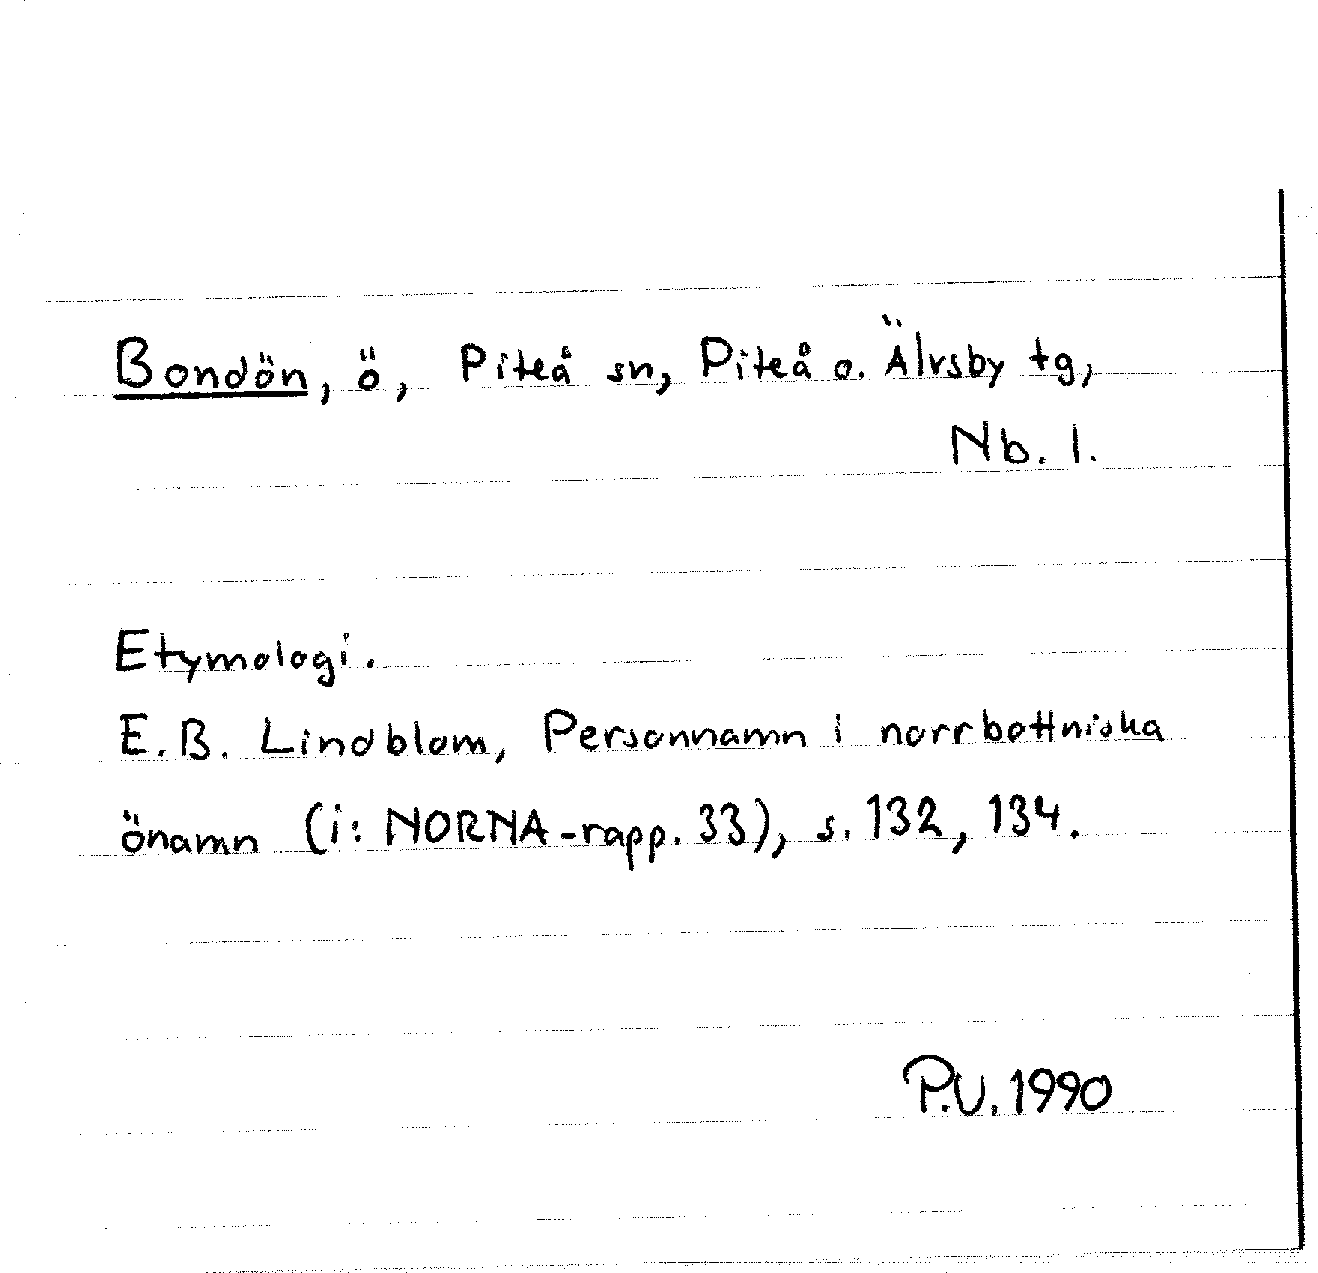 Bondön, ö, Piteå sn, Piteå o. Älvsby tg,
Nb. l.
Etymologi.
E.B. Lindblom, Personnamn i norrbottniska
önamn (i: NORNA-rapp. 33), s. 132, 134.
P.U. 1990